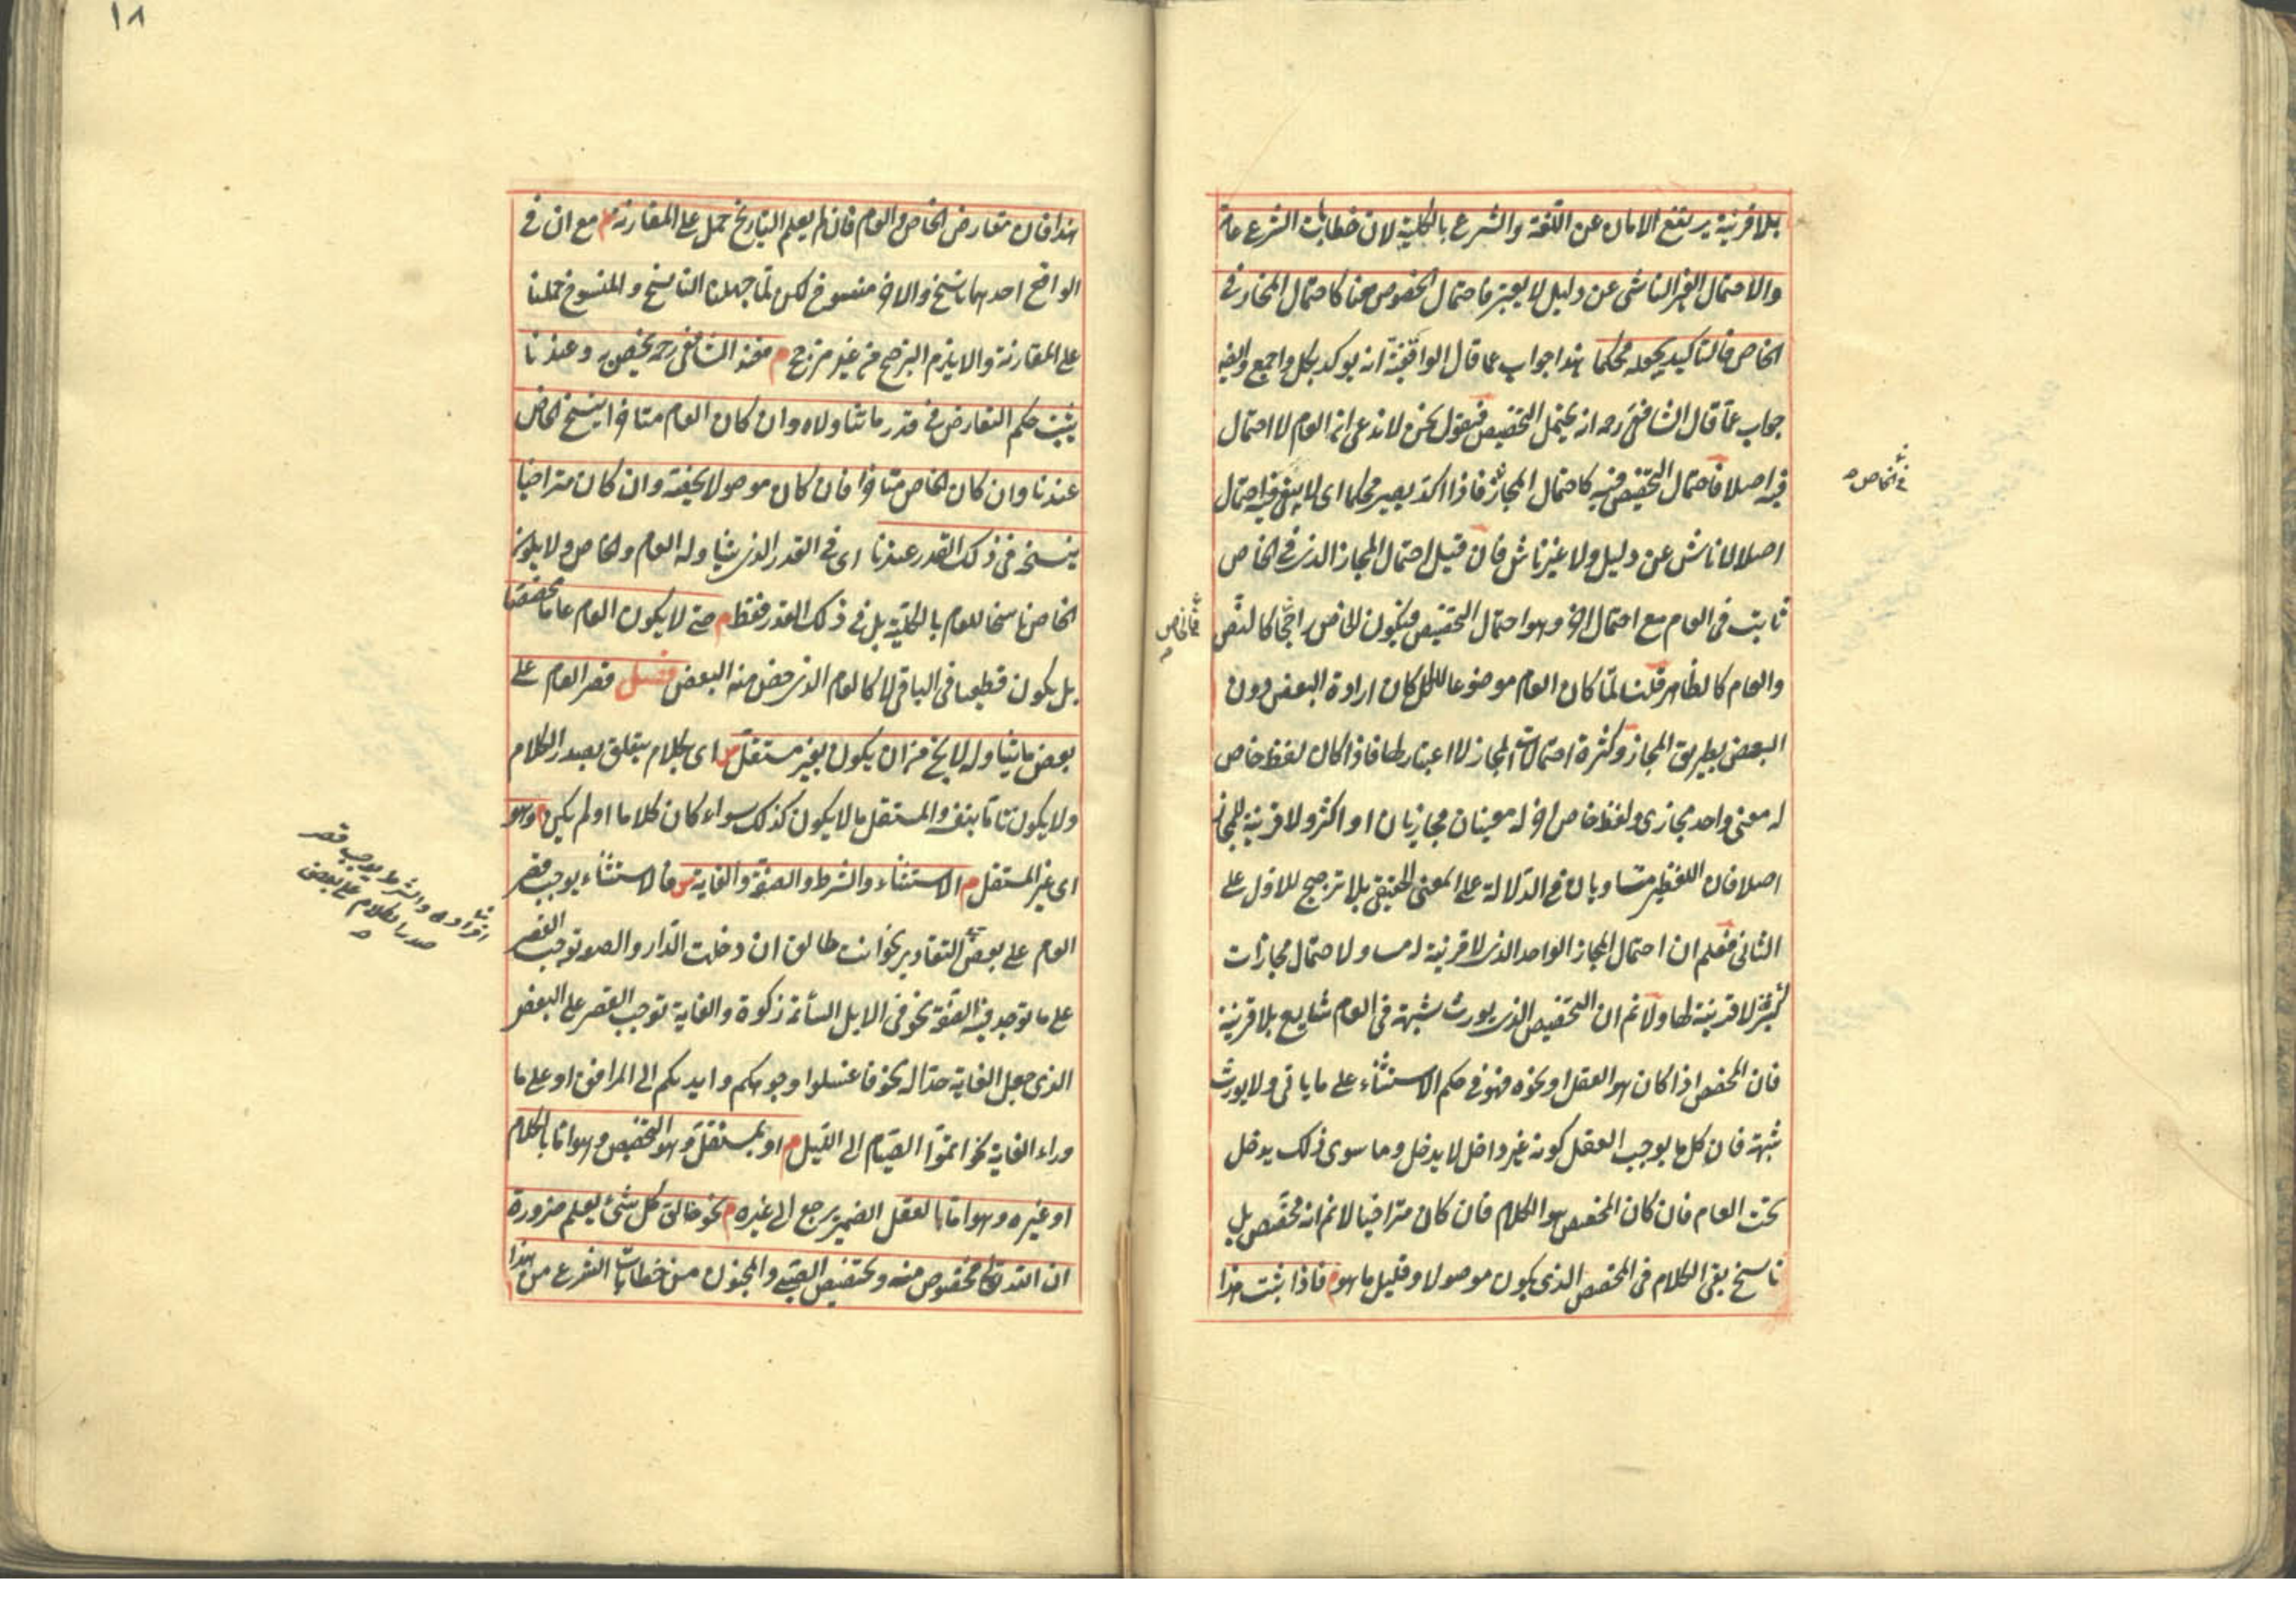 بلا قرينة يرتفع الامان عن اللغة والشرع بالكلية لان خطابات الشرع عامة
والاحتمال الغير الناشى عن دليل لا يعتبر فاحتمال الخصوص هنا كاحتمال المجاز فى
الخاص فالتاكيد يجعله محكما هذا جواب عما قال الواقفية انه يوكد بكل واجمع وايضا
جواب عما قال الشافعى رحه انه يحتمل التخصيص فنقول نحن لا ندعى ان العام لا احتمال
فيه اصلا فاحتمال التخصيص فيه كاحتمال المجاز فاذا اكد يصير محكما اى لا يبقى فيه احتمال
فى الخاص
اصلا لا ناش عن دليل ولا غير ناش فان قيل احتمال المجاز الذى فى الخاص
ثابت فى العام مع احتمال اخر وهو احتمال التخصيص فيكون الخاص راجحا كالنص
فالخاص
والعام كالظاهر قلنا لما كان العام موضوعا للكل كان ارادة البعض دون
البعض بطريق المجاز وكثرة احتمالات المجاز لا اعتبار لها فاذا كان لفظ خاص
له معنى واحد مجازى ولفظ خاص اخر له معنيان مجازيان او اكثر ولا قرينة للمجاز
اصلا فان اللفظين متساويان فى الدلالة على المعنى الحقيقى بلا ترجيح للاول على
الثانى فعلم ان احتمال المجاز الواحد الذى لا قرينة له مساو لاحتمال مجازات
كثيرة لا قرينة لها ولا نم ان التخصيص الذى يورث شبهة فى العام شايع بلا قرينة
فان المخصص اذا كان هو العقل او نحوه فهو فى حكم الاستثناء على ما ياتى ولا يورث
شبهة فان كل ما يوجب العقل كونه غير داخل لا يدخل وما سوى ذلك يدخل
تحت العام فان كان المخصص هو الكلام فان كان متراخيا لا نم انه مخصص بل
ناسخ بقى الكلام فى المخصص الذى يكون موصولا وقليل ما هو م فاذا ثبت هذا
١٨
هذا فان تعارض الخاص والعام فان لم يعلم التاريخ حمل على المقارنة مع ان فى
الواقع احدهما ناسخ والاخر منسوخ لكن لما جهلنا الناسخ والمنسوخ حملنا
على المقارنة والا يلزم الترجيح من غير مرجح م فعند الشافعى رحه يخص به وعندنا
يثبت حكم التعارض فى قدر ما تناولاه وان كان العام متاخرا ينسخ الخاص
عندنا وان كان الخاص متاخرا فان كان موصولا يخصه وان كان متراخيا
ينسخه فى ذلك القدر عندنا اى فى القدر الذى يتناوله العام والخاص ولا يكون
الخاص ناسخا للعام بالكلية بل فى ذلك القدر فقط م حتى لا يكون العام عاما مخصصا
بل يكون قطعيا فى الباقى لا كالعام الذى خص منه البعض فصل قصر العام على
بعض ما يتناوله لا يخ من ان يكون بغير مستقل س اى بكلام يتعلق بصدر الكلام
ولا يكون تاما بنفسه والمستقل ما لا يكون كذلك سواء كان كلاما او لم يكن م وهو
اى غير المستقل م الاستثناء والشرط والصفة والغاية س فالاستثناء يوجب قصر
العام على بعض افراده والشرط يوجب قصر
صدر الكلام على بعض
التقادير نحو انت طالق ان دخلت الدار والصفة توجب القصر
على ما توجد فيه الصفة نحو فى الابل السائمة زكوة والغاية توجب القصر على البعض
الذى جعل الغاية حدا له نحو فاغسلوا وجوهكم وايديكم الى المرافق او على ما
وراء الغاية نحو اتموا الصيام الى الليل م او بمستقل وهو التخصيص وهو اما بالكلام
او غيره وهو اما بالعقل الضمير يرجع الى غيره م نحو خالق كل شئ يعلم ضرورة
ان الله تعالى مخصوص منه وتخصيص الصبى والمجنون من خطابات الشرع من هذا